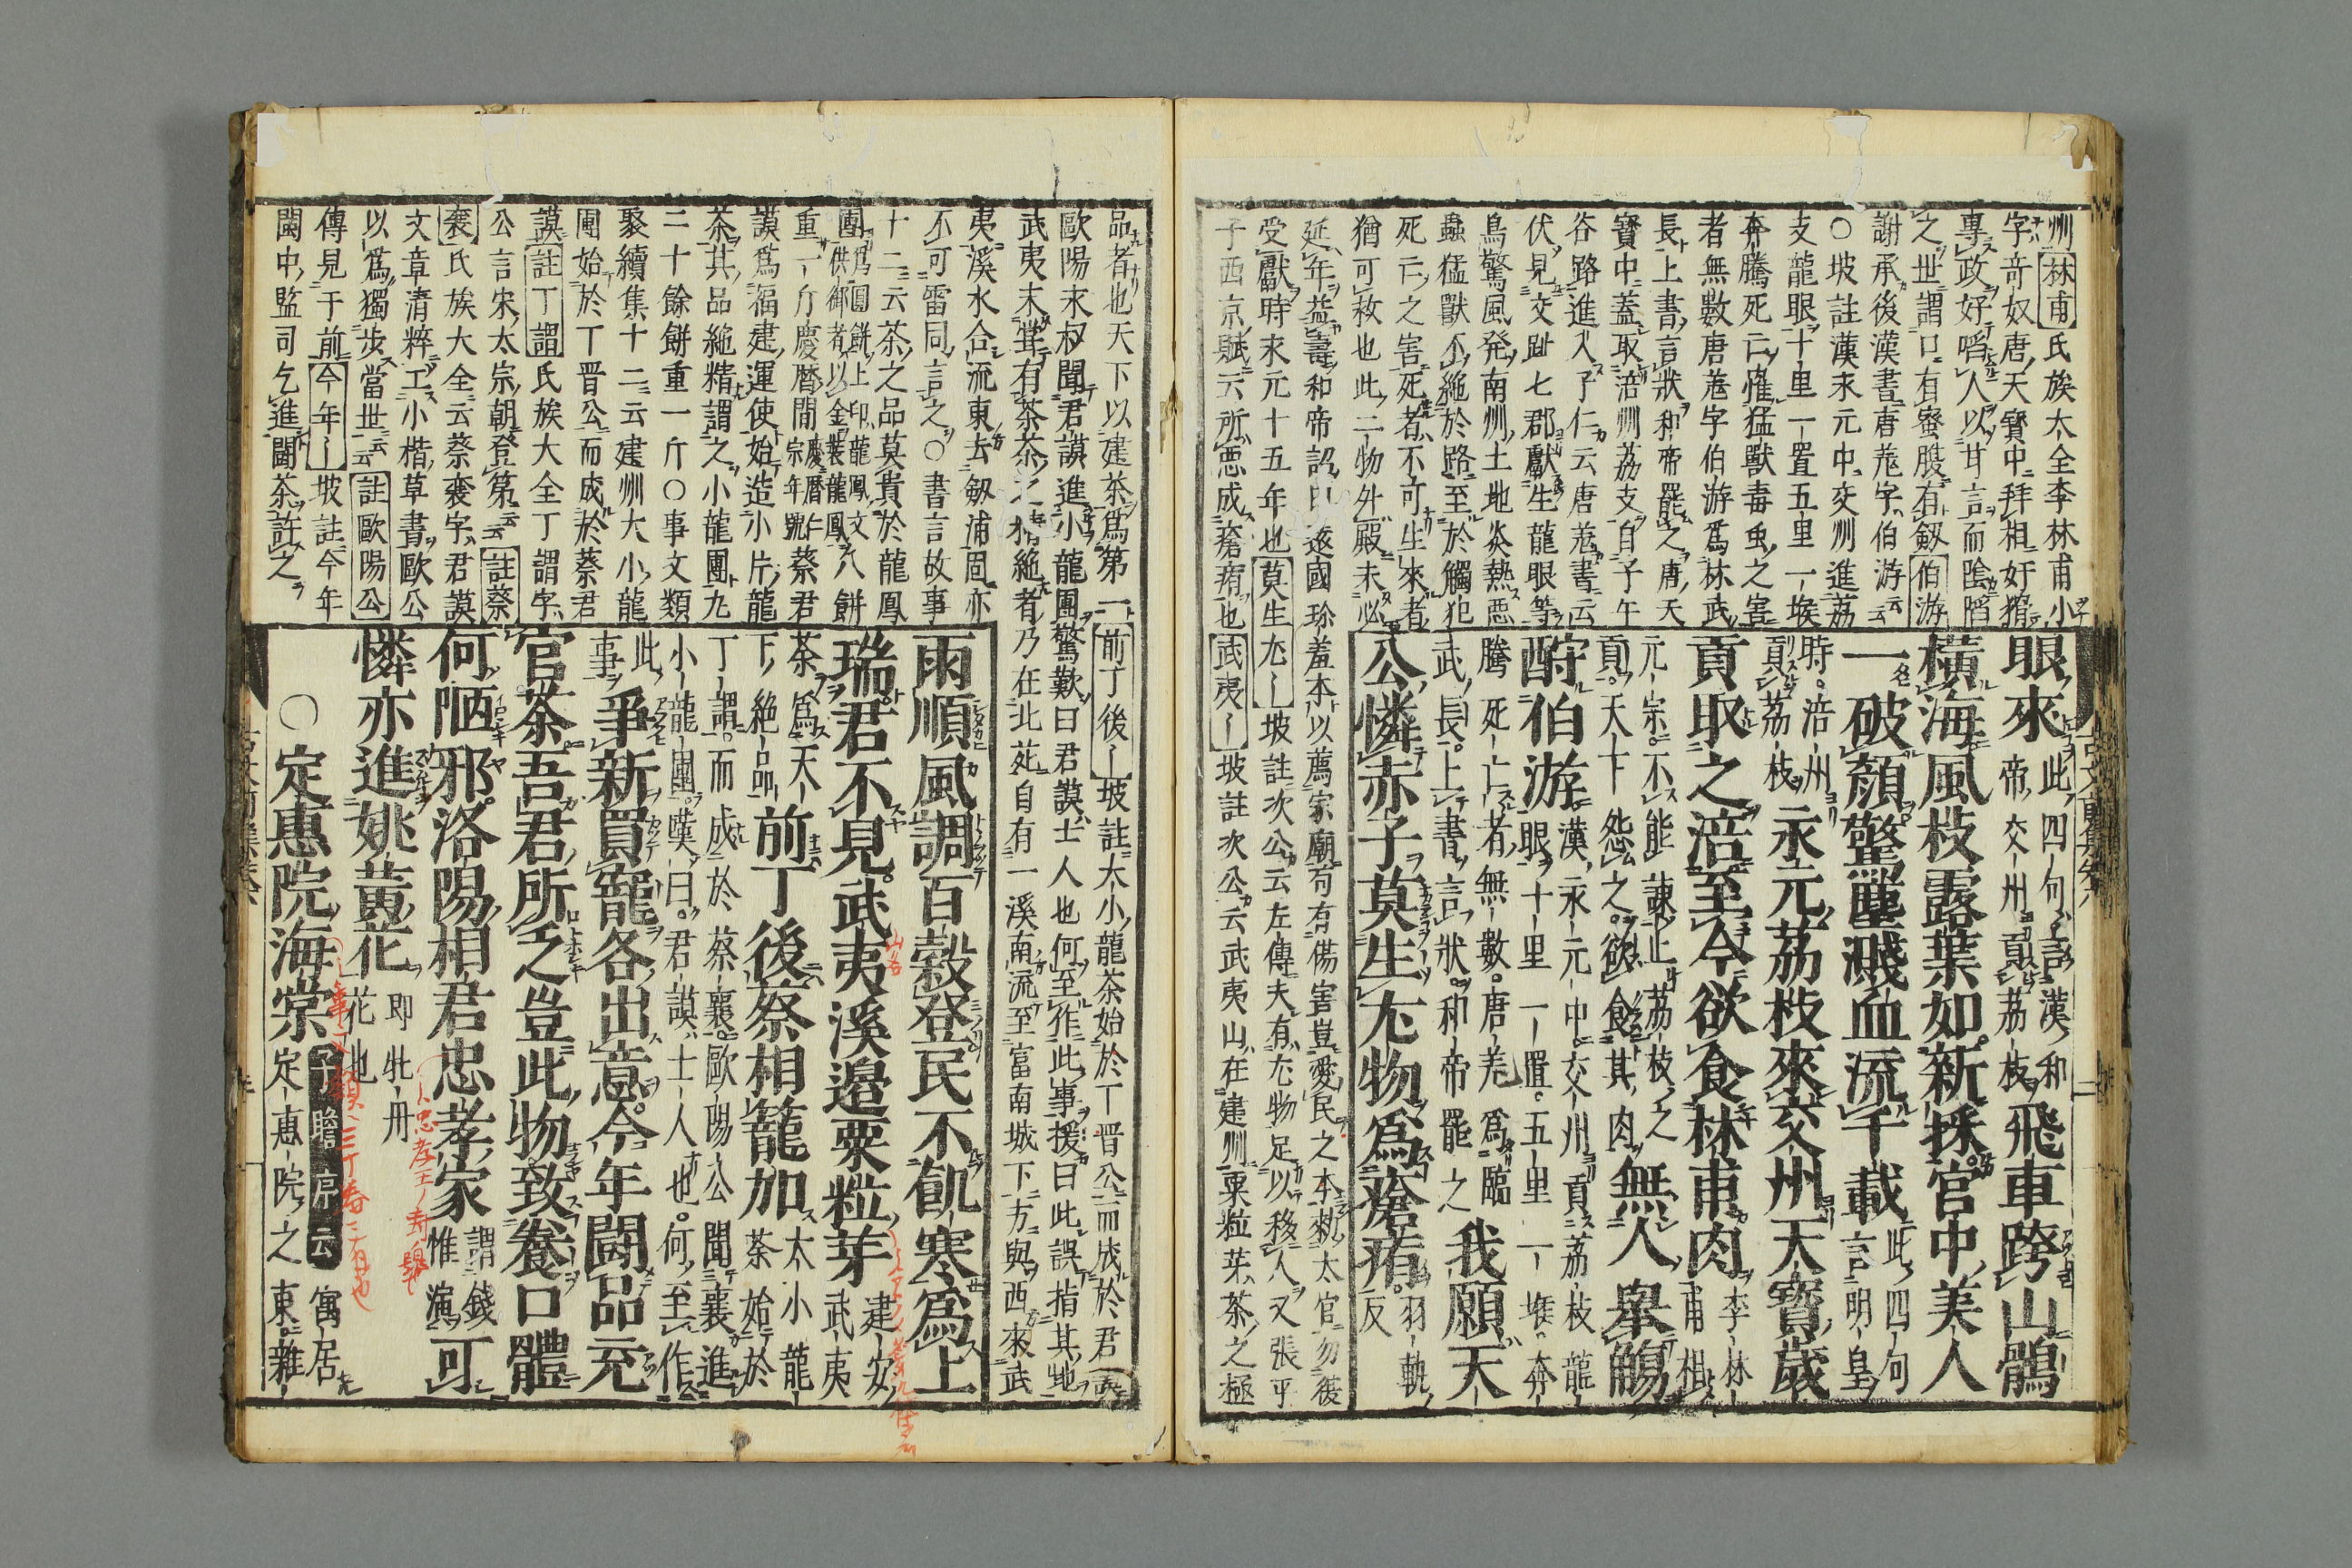 州林甫氏族大全李林甫小
字奇奴唐天寶中拜相奸猾
專政好啗人以甘言而陰䧟
之世謂口有蜜腹有劔伯游
謝承後漢書唐羗字伯游云
○坡註漢永元中交州進荔
支龍眼十里一置五里一堠
奔騰死亡罹猛獸毒虫之害
者無數唐羗字伯游爲林武
長上書言狀和帝罷之唐天
寶中蓋取涪州荔支自子午
谷路進入子仁云唐羗書云
伏見交趾七郡獻生龍眼等
鳥驚風発南州土地炎熱惡
蟲猛獸不絶於路至於觸犯
死亡之害死者不可生來者
猶可救也此二物外殿未必
延年益壽和帝詔曰遠國珍羞本以薦宗廟苟有傷害豈愛民之本勅太官勿復
受獻時永元十五年也莫生尤〡坡註次公云左傳夫有尤物足以移人又張平
子西京賦云所惡成瘡痏也武夷〡坡註次公云武夷山在建州粟粒茶之極
眼來此四句言漢和帝交州貢荔枝飛車跨山鶻
橫海風枝露葉如新採宫中美人
一破顔驚塵濺血流千載此四句言明皇
時涪州貢荔枝永元荔枝來交州天寶歲
貢取之涪至今欲食林甫肉李林甫相
元宗不能諫止荔枝之貢天下怨之欲食其肉無人舉觴
酹伯游漢永元中交州貢荔枝龍眼十里一置五里一堠奔
騰死亡者無數唐羌爲臨武長上書言狀和帝罷之我願天
公憐赤子莫生尤物爲瘡痏羽軌反
品者也天下以建茶爲第一前丁後〡坡註大小龍茶始於丁晋公而成於君謨
歐陽永叔聞君謨進小龍團驚歎曰君謨士人也何至作此事援曰此誤指其地
武夷未嘗有茶茶之精絶者乃在北苑自有一溪南流至富南城下方與西來武
夷溪水合流東去劔浦固亦
不可雷同言之○書言故事
十二云茶之品莫貴於龍鳳
團爲圓餅上印龍鳳文供御者以金裝龍鳳八餅
重一斤慶暦間慶暦仁宗年號蔡君
謨爲福建運使始造小片龍
茶其品絶精謂之小龍團九
二十餘餅重一斤○事文類
聚續集十二云建州大小龍
團始於丁晋公而成於蔡君
謨註丁謂氏族大全丁謂字
公言宋太宗朝登第云註蔡
襄氏族大全云蔡襄字君謨
文章清粹工小楷草書歐公
以爲獨歩當世云云註歐陽公
傳見于前今年〡坡註今年
閩中監司乞進鬪茶許之
雨順風調百穀登民不飢寒爲上
瑞君不見武夷溪邉粟粒芽建安武夷
茶爲天下絶品前丁後蔡相籠加太小龍茶始於
丁謂而成於蔡襄歐陽公聞襄進小龍團嘆曰君謨士人也何至作
此事爭新買寵各出意今年鬪品充
官茶吾君所乏豈此物致養口體
何陋邪洛陽相君忠孝家謂錢惟演可
憐亦進姚黄花即牡丹花也
○定惠院海棠子瞻序云寓居
定惠院之東雜